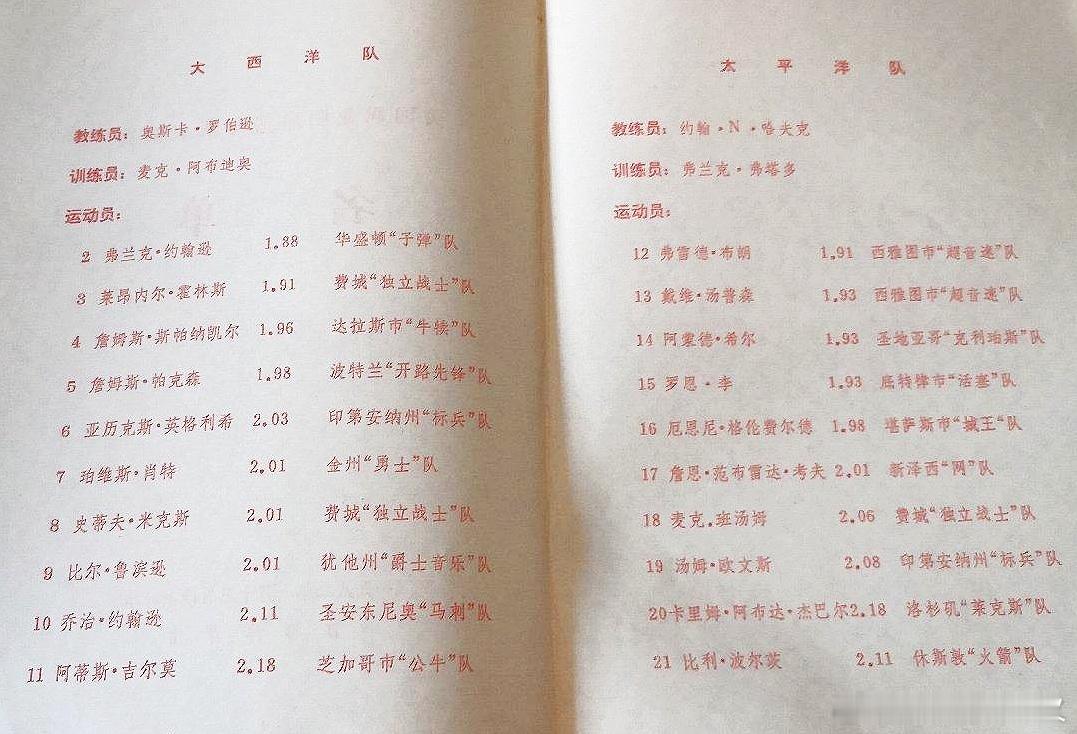 大西洋队
教练员：奥斯卡·罗伯逊
训练员：麦克·阿布迪奥
运动员：
2 弗兰克·约翰逊 1.88 华盛顿“子弹”队
3 莱昂内尔·霍林斯 1.91 费城“独立战士”队
4 詹姆斯·斯帕纳凯尔 1.96 达拉斯市“牛犊”队
5 詹姆斯·帕克森 1.98 波特兰“开路先锋”队
6 亚历克斯·英格利希 2.03 印第安纳州“标兵”队
7 珀维斯·肖特 2.01 金州“勇士”队
8 史蒂夫·米克斯 2.01 费城“独立战士”队
9 比尔·鲁滨逊 2.01 犹他州“爵士音乐”队
10 乔治·约翰逊 2.11 圣安东尼奥“马刺”队
11 阿蒂斯·吉尔莫 2.18 芝加哥市“公牛”队
太平洋队
教练员：约翰·N·哈夫克
训练员：弗兰克·弗塔多
运动员：
12 弗雷德·布朗 1.91 西雅图市“超音速”队
13 戴维·汤普森 1.93 西雅图市“超音速”队
14 阿蒙德·希尔 1.93 圣地亚哥“克利珀斯”队
15 罗恩·李 1.93 底特律市“活塞”队
16 厄恩尼·格伦费尔德 1.98 堪萨斯市“城王”队
17 詹恩·范布雷达·考夫 2.01 新泽西“网”队
18 麦克.班汤姆 2.06 费城“独立战士”队
19 汤姆·欧文斯 2.08 印第安纳州“标兵”队
20卡里姆·阿布达·杰巴尔2.18 洛杉矶“莱克斯”队
21 比利·波尔茨 2.11 休斯敦“火箭”队